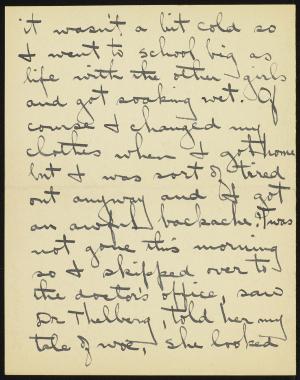 it wasn't a bit cold so
I went to school big as
life with the other girls
and got soaking wet. Of
course I changed my
clothes when I got home
but I was sort of tired
out anyway and I got
an awful backache. It was
not gone this morning
so I skipped over to
the doctor's office, saw
Dr Thelberg, told her my
tale of woe, she looked